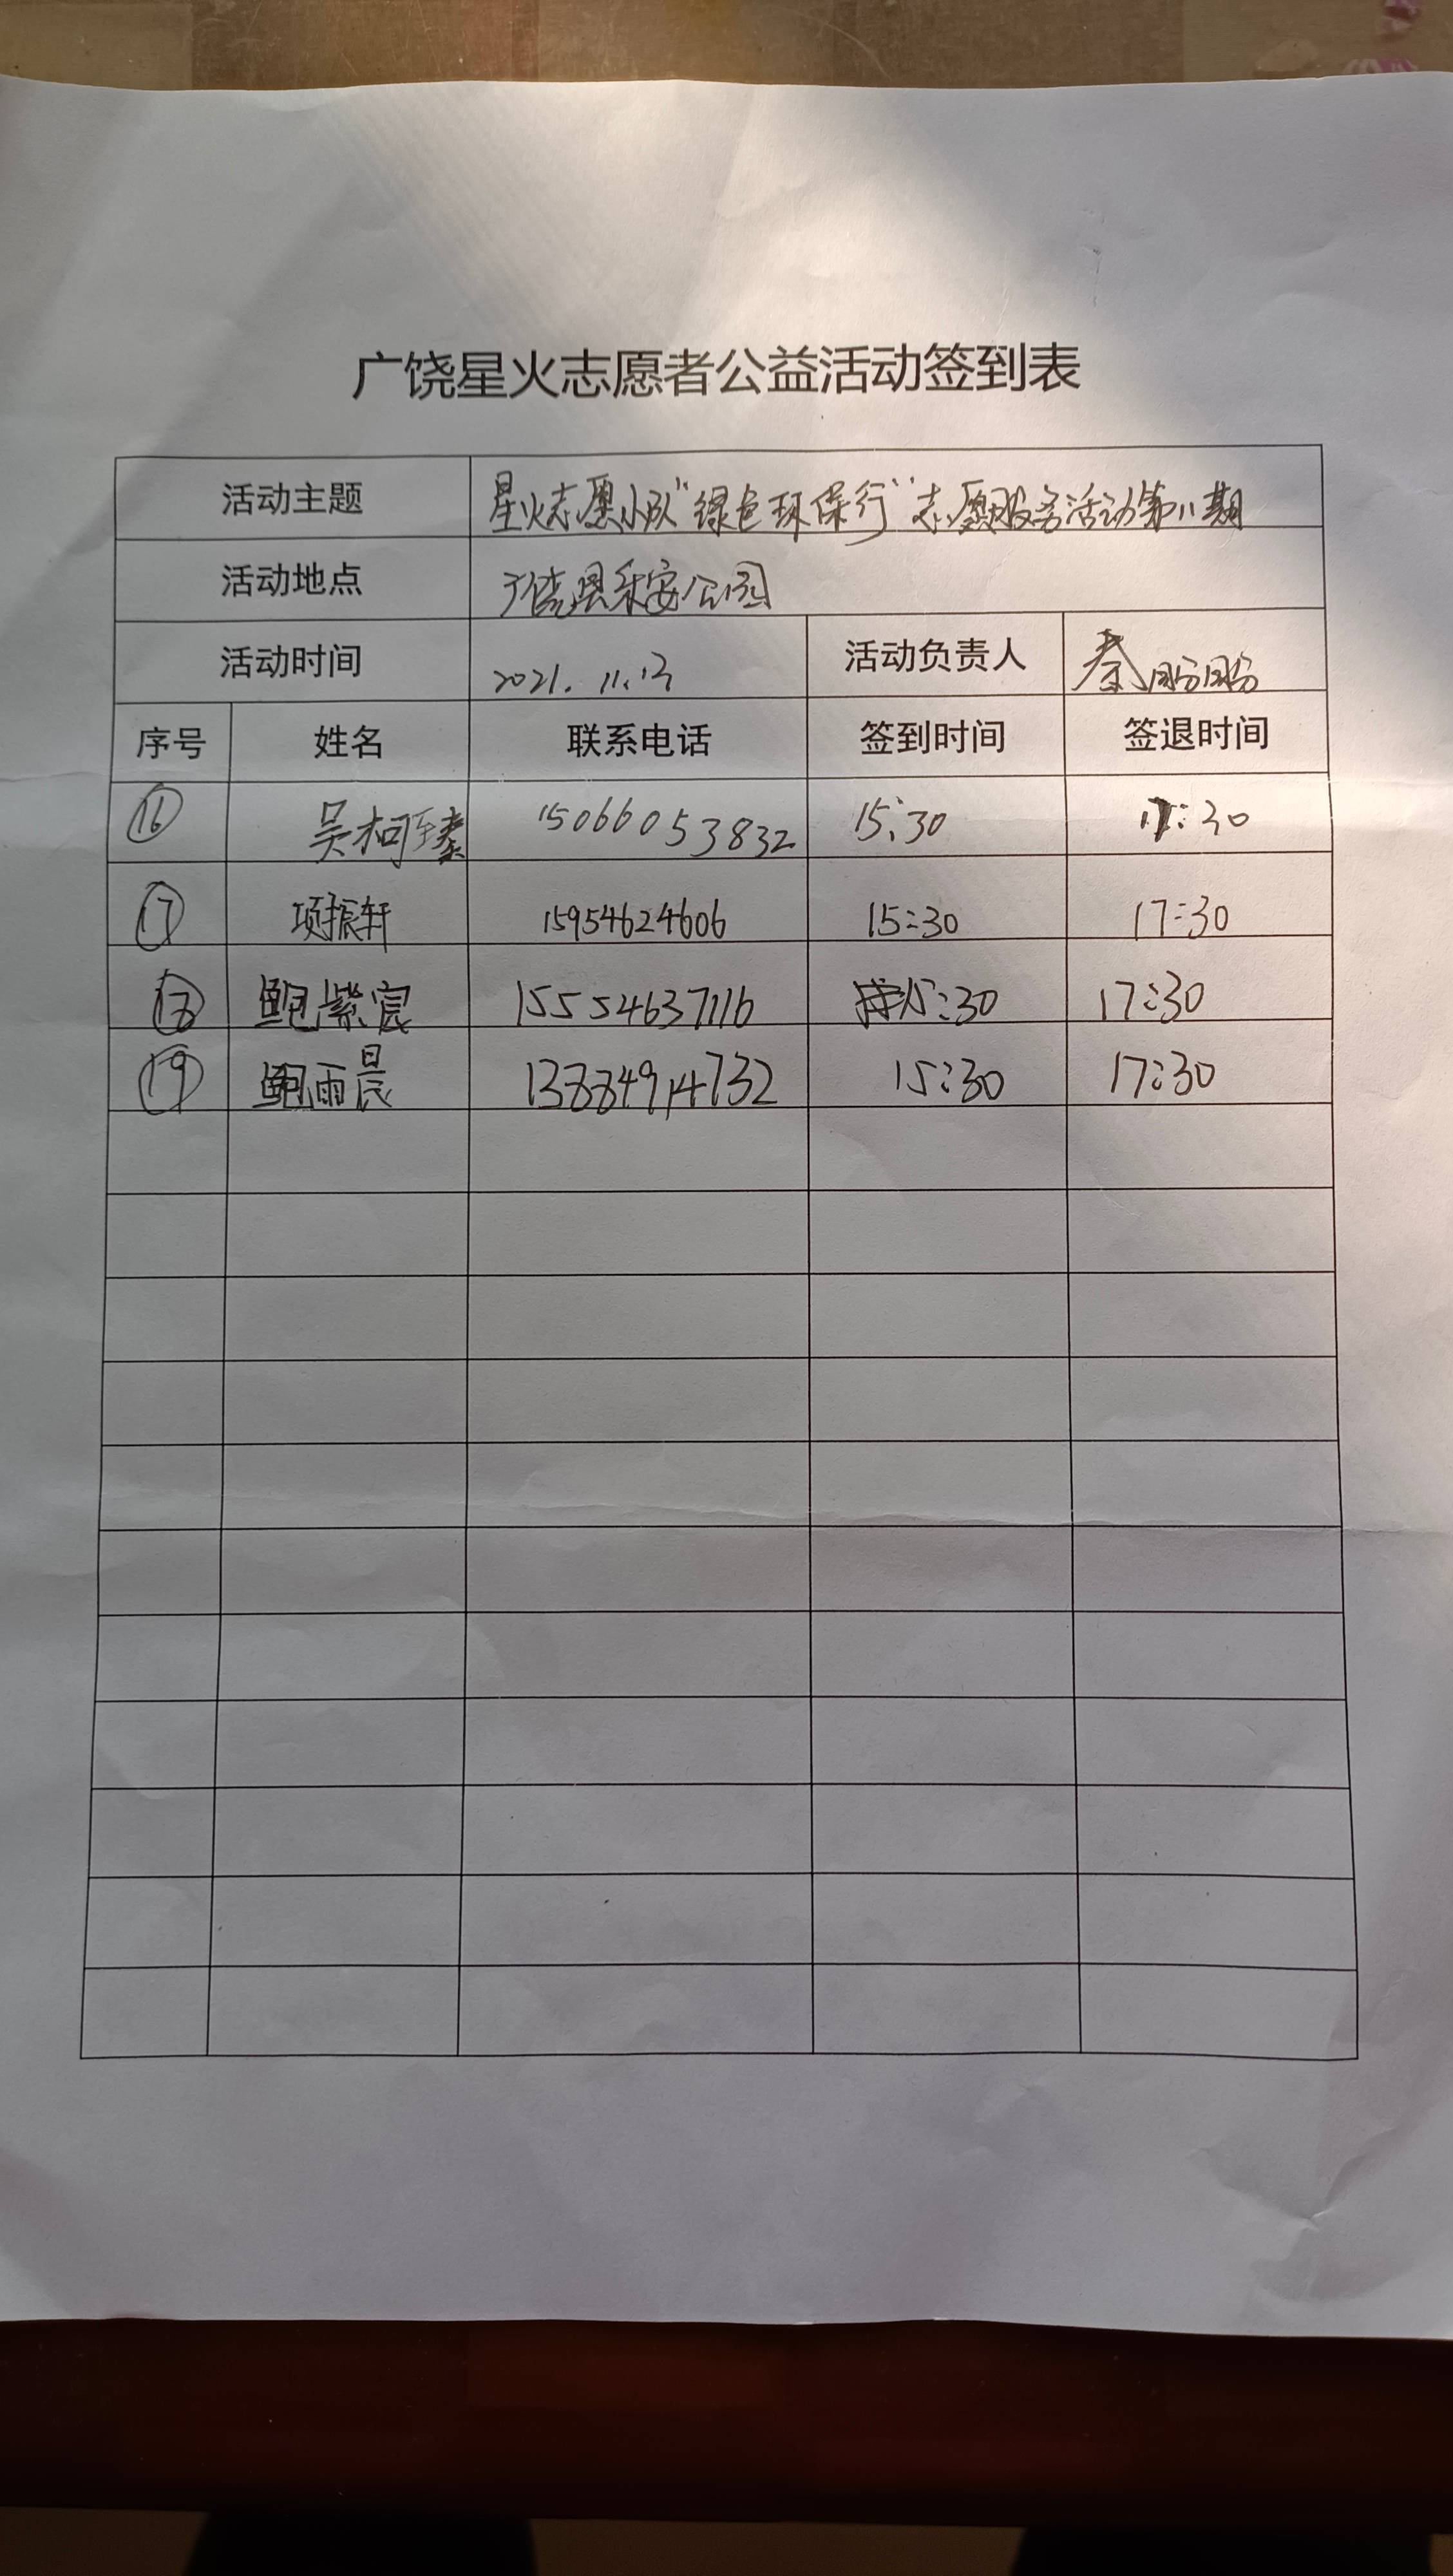 广饶星火志愿者公益活动签到表
活动主题 星火志愿小队"绿色环保行"志愿服务活动第八期
活动地点 广饶县乐安公园
活动时间 2021.11.13 活动负责人 秦盼盼
序号 姓名 联系电话 签到时间 签退时间
⑯ 吴柯臻 15066053832 15:30 17:30
⑰ 项振轩 15954624606 15:30 17:30
⑱ 鲍紫宸 15554637116 15:30 17:30
⑲ 鲍雨晨 13884914732 15:30 17:30